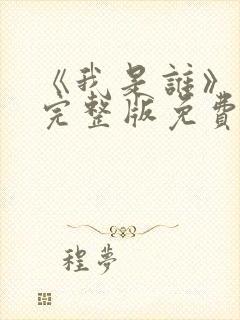 《我是誰》
完整版免費
程夢